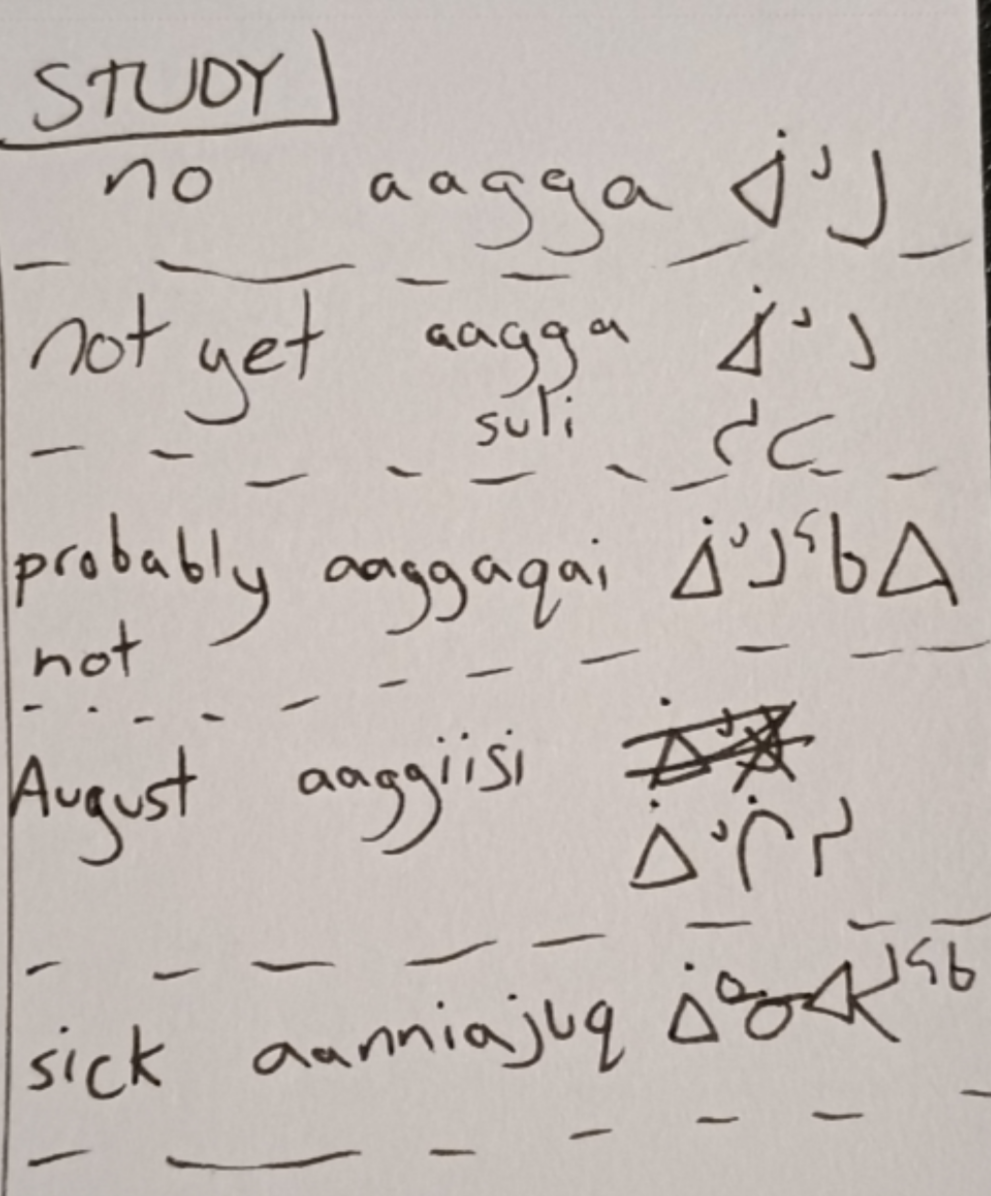 STUDY
no aagga ᐋᒡᒐ
not yet aagga ᐋᒡᒐ
suli ᓱᓕ
probably aaggaqai ᐋᒡᒐᖃᐃ
not
August aaggiisi
ᐋᒡᒌᓯ
sick aanniajuq ᐋᓐᓂᐊᔪᖅ